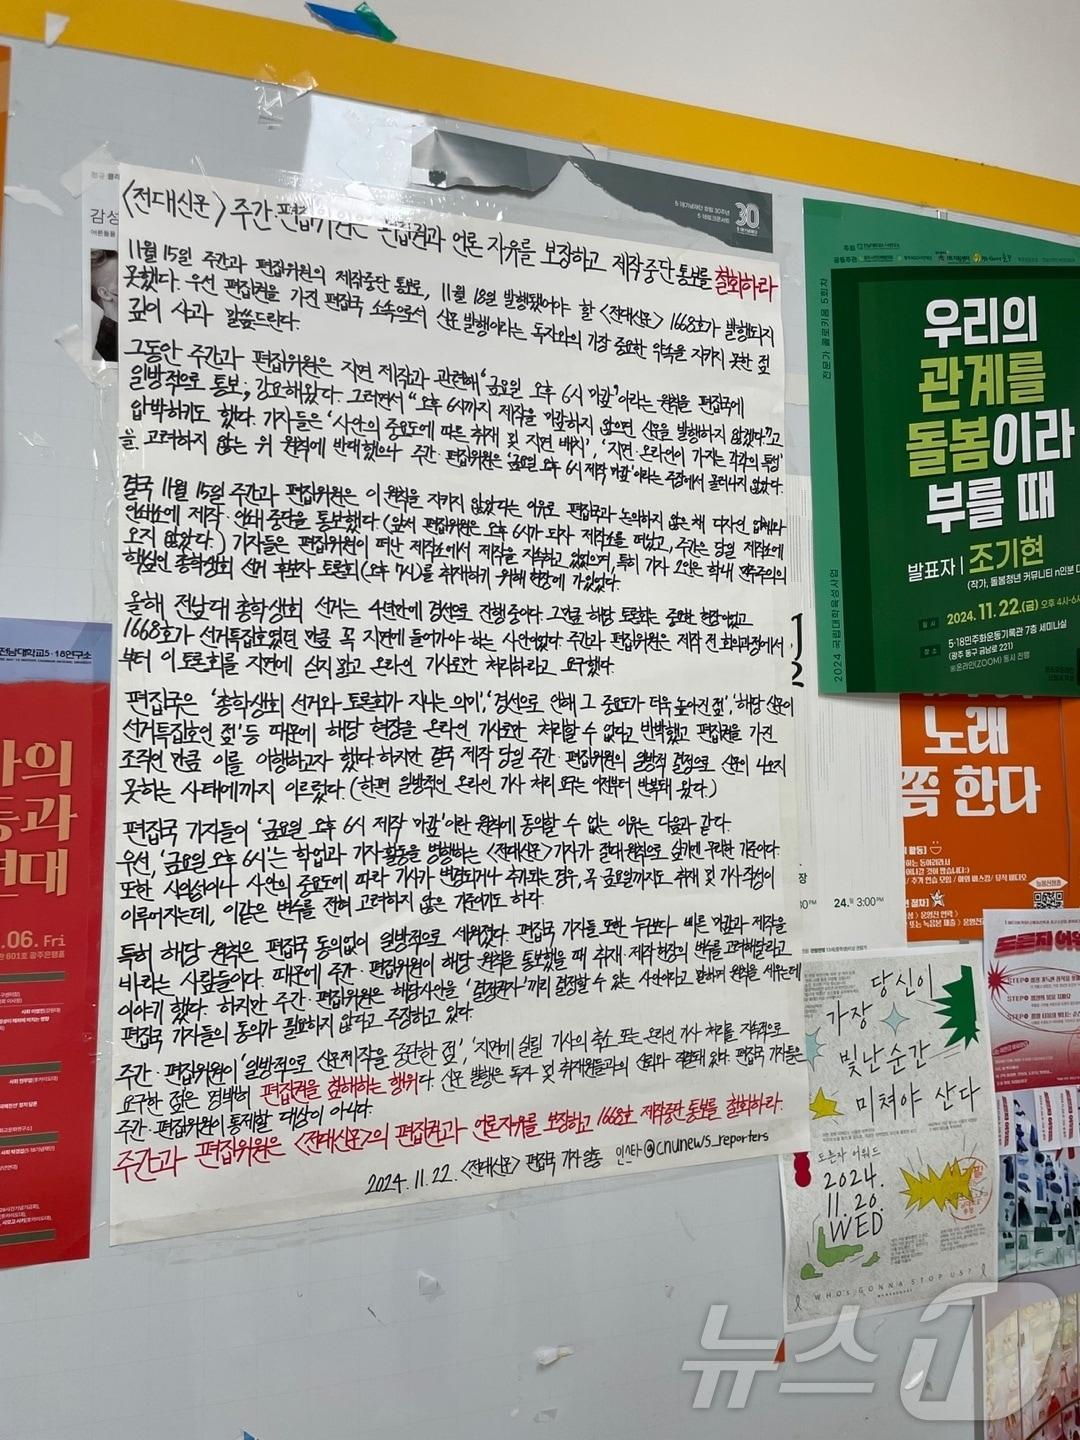 <전대신문> 주간·편집위원은 편집권과 언론 자유를 보장하고 제작중단 통보를 철회하라
11월 15일 주간과 편집위원의 제작중단 통보로, 11월 18일 발행됐어야 할 <전대신문> 1668호가 발행되지
못했다. 우선 편집권을 가진 편집국 소속으로서 신문 발행이라는 독자와의 가장 중요한 약속을 지키지 못한 점
깊이 사과 말씀드린다.
그동안 주간과 편집위원은 지면 제작과 관련해 '금요일 오후 6시 마감'이라는 원칙을 편집국에
일방적으로 통보, 강요해왔다. 그러면서 "오후 6시까지 제작을 마감하지 않으면 신문을 발행하지 않겠다"고
압박하기도 했다. 기자들은 '사안의 중요도에 따른 취재 및 지면 배치', '지면·온라인이 가지는 각각의 특성'
을 고려하지 않는 위 원칙에 반대했으나 주간·편집위원은 '금요일 오후 6시 제작 마감'이라는 주장에서 물러나지 않았다.
결국 11월 15일 주간과 편집위원은 이 원칙을 지키지 않았다는 이유로 편집국과 논의하지 않은 채 디자인 업체와
인쇄소에 제작·인쇄 중단을 통보했다 (앞서 편집위원은 오후 6시가 되자 제작소를 떠났고, 주간은 당일 제작소에
오지 않았다.) 기자들은 편집위원이 떠난 제작소에서 제작을 지속하고 있었으며, 특히 기자 2인은 학내 민주주의의
핵심인 총학생회 선거 후보자 토론회(오후 7시)를 취재하기 위해 현장에 가있었다.
올해 전남대 총학생회 선거는 4년만에 경선으로 진행 중이다. 그만큼 해당 토론회는 중요한 현장이었고
1668호가 선거특집호였던 만큼 꼭 지면에 들어가야 하는 사안이었다. 주간과 편집위원은 제작 전 회의과정에서
부터 이 토론회를 지면에 싣지 말고 온라인 기사로만 처리하라고 요구했다.
편집국은 '총학생회 선거와 토론회가 지니는 의미', '경선으로 인해 그 중요도가 더욱 높아진 점', '해당 신문이
선거특집호인 점' 등 때문에 해당 현장을 온라인 기사로만 처리할 수 없다고 반박했고 편집권을 가진
조직인 만큼 이를 이행하고자 했다. 하지만 결국 제작 당일 주간·편집위원의 일방적 결정으로 신문이 나오지
못하는 사태에까지 이르렀다. (한편 일방적인 온라인 기사 처리 요구는 이전부터 반복돼 왔다.)
편집국 기자들이 '금요일 오후 6시 제작 마감'이란 원칙에 동의할 수 없는 이유는 다음과 같다.
우선, '금요일 오후 6시'는 학업과 기자활동을 병행하는 <전대신문> 기자가 절대 원칙으로 삼기엔 무리한 기준이다.
또한 시의성이나 사안의 중요도에 따라 기사가 변경되거나 추가되는 경우, 꼭 금요일까지도 취재 및 기사 작성이
이루어지는데, 이같은 변수를 전혀 고려하지 않은 기준이기도 하다.
특히 해당 원칙은 편집국 동의없이 일방적으로 세워졌다. 편집국 기자들 또한 누구보다 빠른 마감과 제작을
바라는 사람들이다. 때문에 주간·편집위원이 해당 원칙을 통보했을 때 취재·제작 현장의 변수를 고려해달라고
이야기 했다. 하지만 주간·편집위원은 해당사안을 '결정권자'끼리 결정할 수 있는 사안이라고 말하며 원칙을 세우는데
편집국 기자들의 동의가 필요하지 않다고 주장하고 있다.
주간·편집위원이 '일방적으로 신문제작을 중단한 점', '지면에 실릴 기사의 축소 또는 온라인 기사 처리를 지속적으로
요구한 점은 명백히 편집권을 침해하는 행위다. 신문 발행은 독자 및 취재원들과의 신뢰와 직결돼 있다. 편집국 기자들은
주간·편집위원이 통제할 대상이 아니다.
주간과 편집위원은 <전대신문>의 편집권과 언론자유를 보장하고 1668호 제작중단 통보를 철회하라.
2024. 11. 22. <전대신문> 편집국 기자 일동 인스타 @cnunews_reporters
감성
30
우리의
관계를
돌봄이라
부를 때
발표자 | 조기현
(작가, 돌봄청년 커뮤니티 n인분 대
일시 2024. 11. 22.(금) 오후 4시-6시
장소 5·18민주화운동기록관 7층 세미나실
(광주 동구 금남로 221)
※온라인(ZOOM) 동시 진행
전문가 콜로키움 5회차
2024 국립대학육성사업
노래
쫌 한다
24. 3:00PM
당신이
가장
빛난순간
미쳐야 산다
도른자 어워드
2024.
11. 20.
WED
WHO's GONNA STOP US?
도른자 어워
STEP
STEP
STEP
전남대학교5·18연구소
사의
등과
현대
.06. Fri
뉴스1